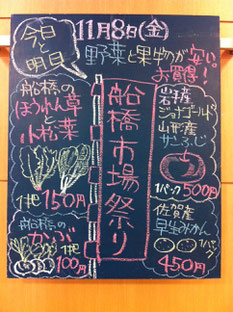 11月8日(金)
今日と
明日
野菜と果物が安い!
お買得!
船橋市場祭り
船橋の
ほうれん草
と
小松菜
1把 150円
船橋の
かぶ
1把 100円
岩手産
ジョナゴールド
山形産
サンふじ
1パック 500円
佐賀産
早生みかん
1パック
450円